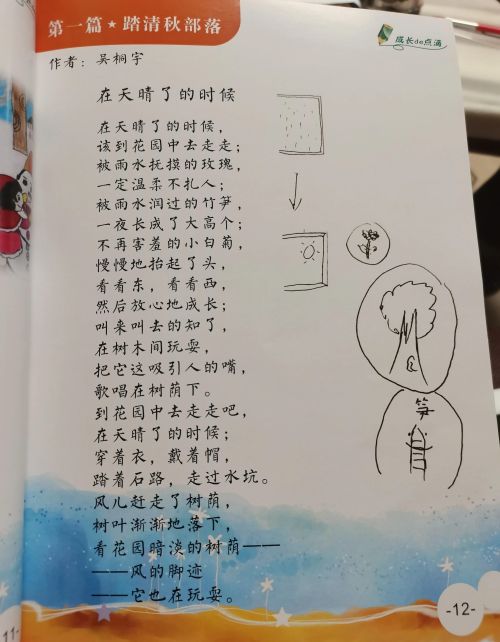 第一篇★踏清秋部落
成长de点滴
作者：吴桐宇
在天晴了的时候
在天晴了的时候，
该到花园中去走走；
被雨水抚摸的玫瑰，
一定温柔不扎人；
被雨水润过的竹笋，
一夜长成了大高个；
不再害羞的小白菊，
慢慢地抬起了头，
看看东，看看西，
然后放心地成长；
叫来叫去的知了，
在树木间玩耍，
把它这吸引人的嘴，
歌唱在树荫下。
到花园中去走走吧，
在天晴了的时候；
穿着衣，戴着帽，
踏着石路，走过水坑。
风儿赶走了树荫，
树叶渐渐地落下，
看花园暗淡的树荫——
——风的脚迹
——它也在玩耍。
笋
-12-
11-